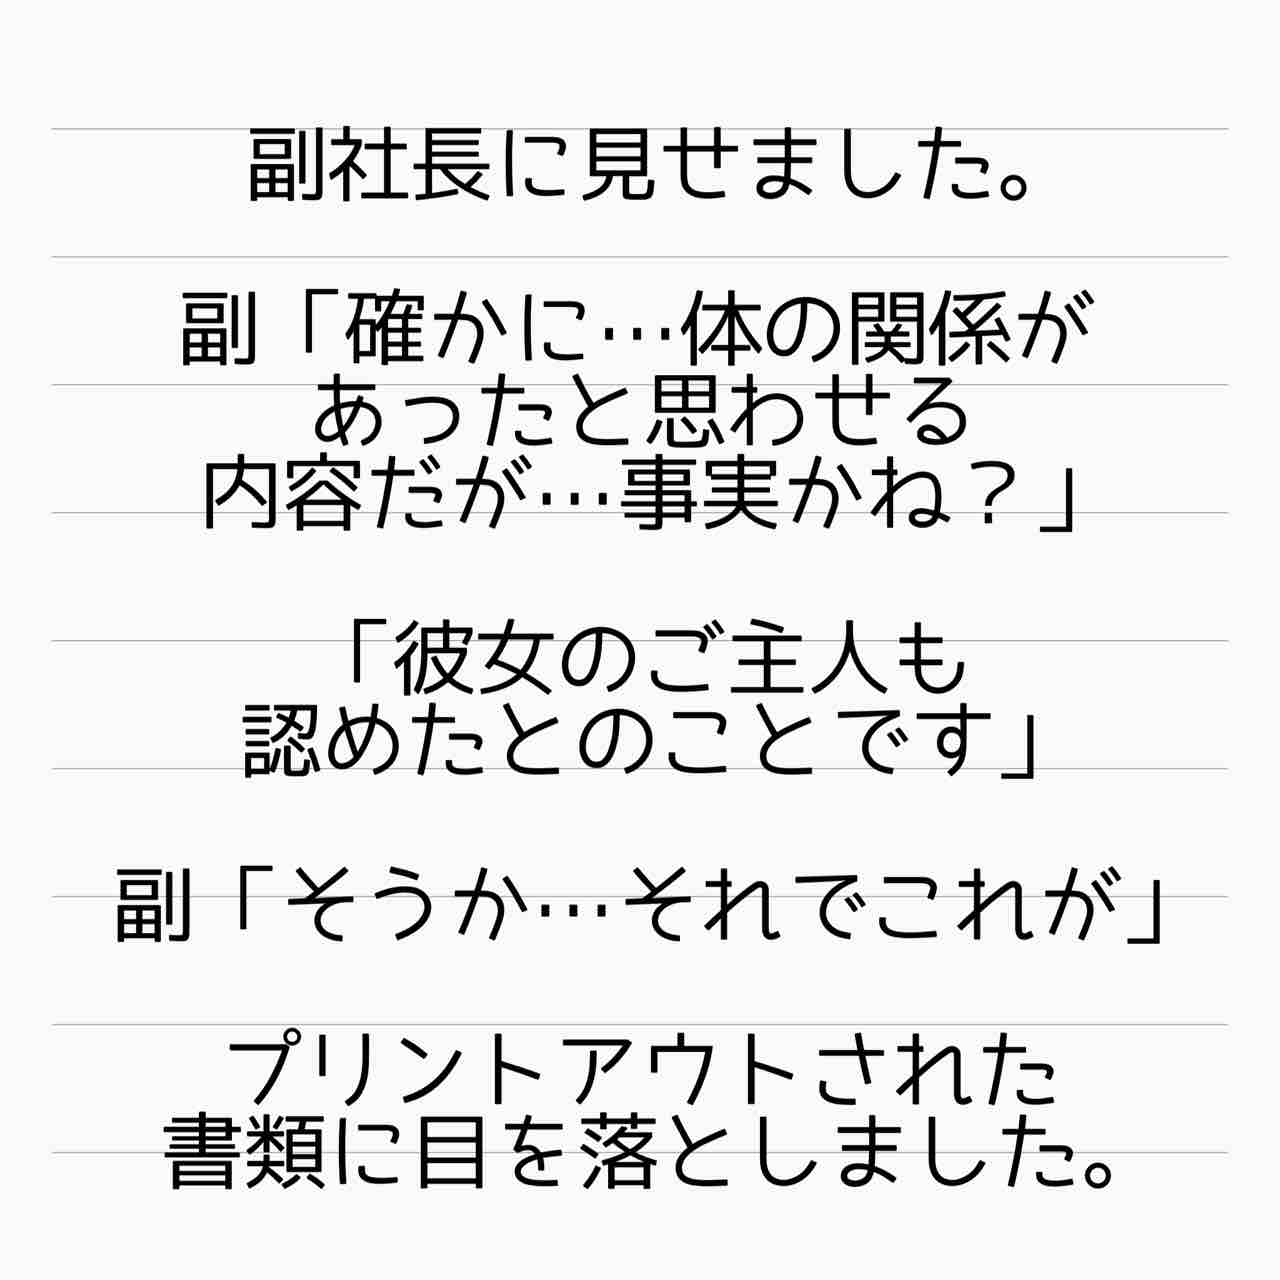 副社長に見せました。
副「確かに…体の関係が
あったと思わせる
内容だが…事実かね？」
「彼女のご主人も
認めたとのことです」
副「そうか…それでこれが」
プリントアウトされた
書類に目を落としました。